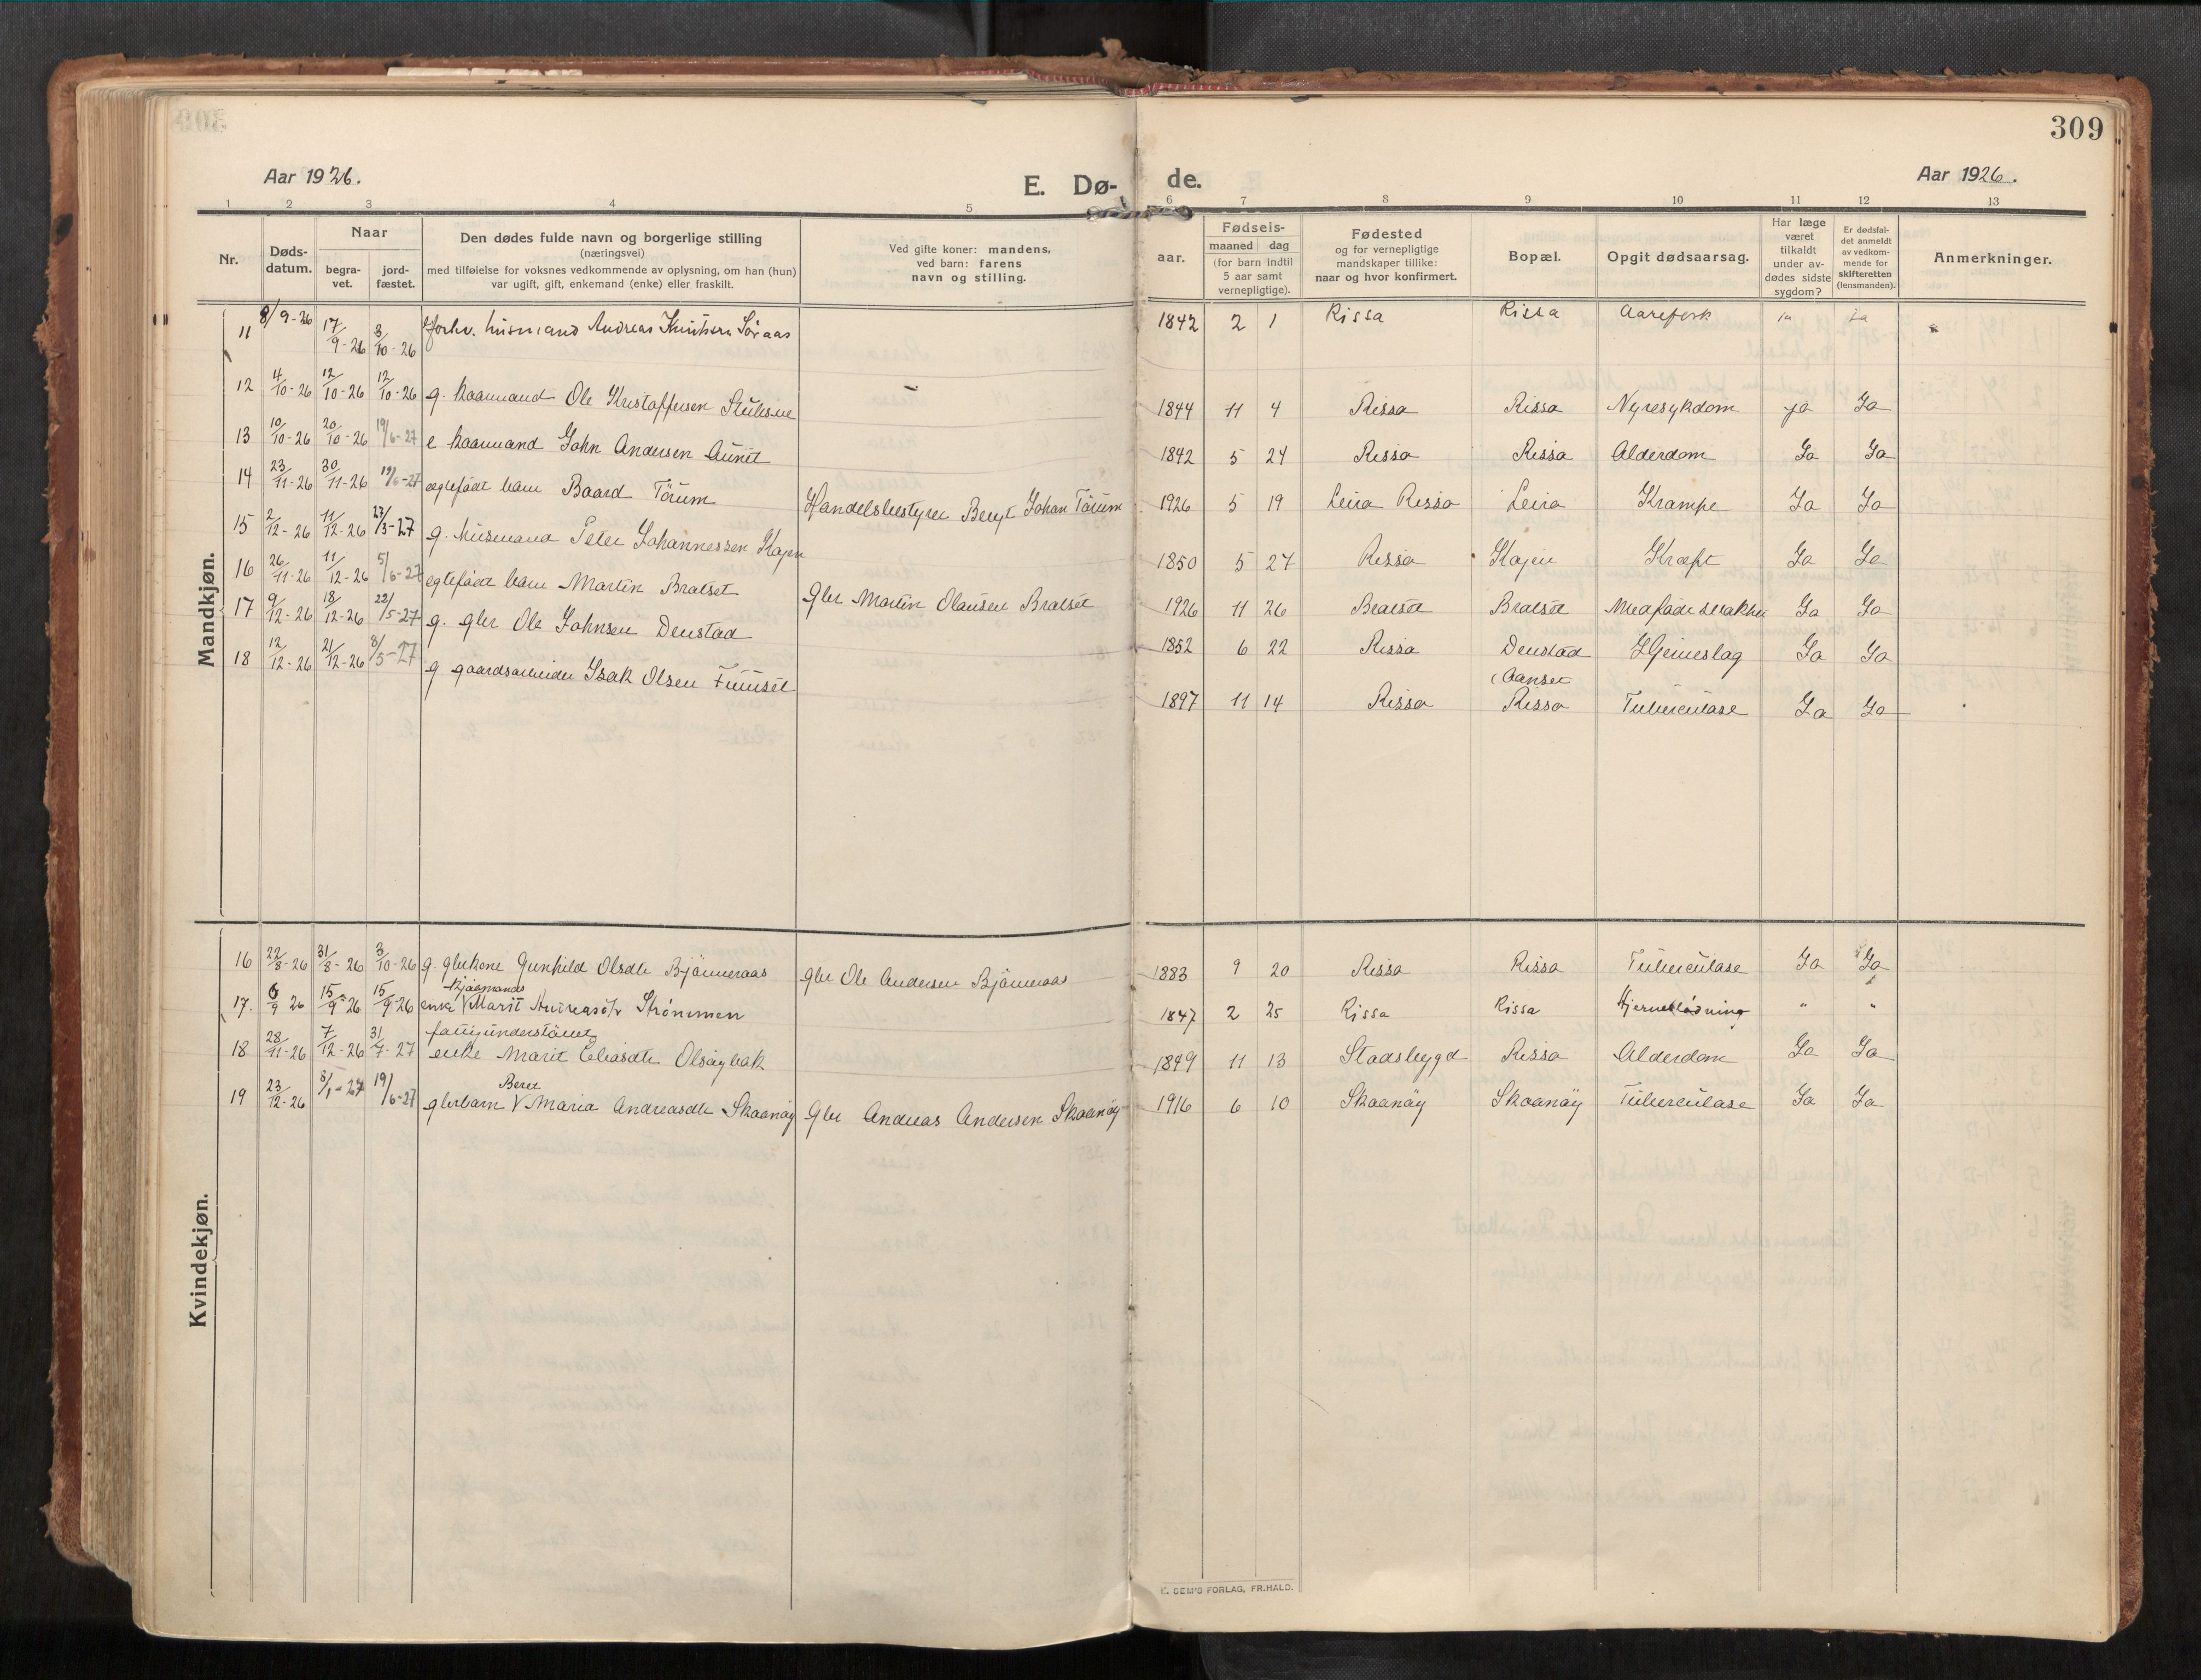 309
Aar 1926.
E. Dø-
de.
Aar 1926.
1 2 3 4 5 6 7 8 9 10 11 12 13
Nr.
Døds-
datum.
Naar
begra-
vet.
jord-
fæstet.
Den dødes fulde navn og borgerlige stilling
(næringsvei)
med tilføielse for voksnes vedkommende av oplysning, om han (hun)
var ugift, gift, enkemand (enke) eller fraskilt.
Ved gifte koner: mandens,
ved barn: farens
navn og stilling.
aar.
Fødsels-
maaned dag
(for barn indtil
5 aar samt
vernepligtige).
Fødested
og for vernepligtige
mandskaper tillike:
naar og hvor konfirmert.
Bopæl.
Opgit dødsaarsag.
Har læge
været
tilkaldt
under av-
dødes sidste
sygdom?
Er dødsfal-
det anmeldt
av vedkom-
mende for
skifteretten
(lensmanden).
Anmerkninger.
Mandkjøn.
11 8/9-26 17/9-26 3/10-26 forhv. husmand Andreas Søraas 1842 2 1 Rissa Rissa Aarefork ja ja
12 4/10-26 12/10-26 12/10-26 g. kaarmand Ole Kristoffersen 1844 11 4 Rissa Rissa Nyresykdom ja Ja
13 10/10-26 20/10-26 19/6-27 e kaarmand John Andersen Aunet 1842 5 24 Rissa Rissa Alderdom Ja Ja
14 23/11-26 30/11-26 19/6-27 egtefødt barn Baard Törum Handelsbestyrer Bengt Johan Törum 1926 5 19 Leira Rissa Leira Krampe Ja Ja
15 2/12-26 11/12-26 27/3-27 g. husmand Peter Johannessen Kajen 1850 5 27 Rissa Kajen Kræft Ja Ja
16 26/11-26 11/12-26 5/6-27 egtefødt barn Martin Bratset Gbr Martin Olausen Bratset 1926 11 26 Bratset Bratset Medfødt svakhet Ja Ja
17 9/12-26 18/12-26 22/5-27 g. gbr Ole Johnsen Denstad 1852 6 22 Rissa Denstad Hjerneslag Ja Ja
18 12/12-26 21/12-26 8/5-27 g gaardsarbeider Isak Olsen Fuuset 1897 11 14 Rissa (Aanset
Rissa Tuberculose Ja Ja
Kvindekjøn.
16 22/8-26 31/8-26 3/10-26 g. gbrkone Gunhild Olsdtr Bjönneraas Gbr Ole Andersen Bjönneraas 1883 9 20 Rissa Rissa Tuberculose Ja Ja
17. 6/9 26 15/9-26 15/9-26 enke Marit Andreasdtr Strømmen 1847 2 25 Rissa Rissa Hjerneblødning " "
fattigunderstöttet
18 28/11-26 7/12-26 31/7-27 enke Marit Eliasdtr Olsöybak 1849 11 13 Stadsbygd Rissa Alderdom Ja Ja
Beret
19 23/12-26 8/1-27 19/6-27 gbrbarn V Maria Andreasdtr Skaanöy Gbr Andreas Andersen Skaanöy 1916 6 10 Skaanöy Skaanöy Tuberculose Ja Ja
E. SEM'S FORLAG, FR.HALD.